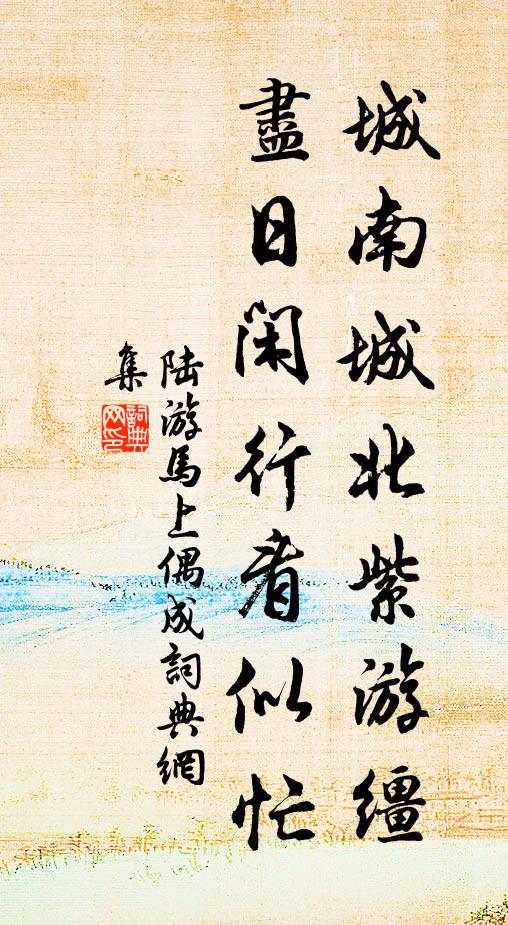 城南城北紫游繮
盡日閑行看似忙
陸游馬上偶成詞典網
集
詞典
网印